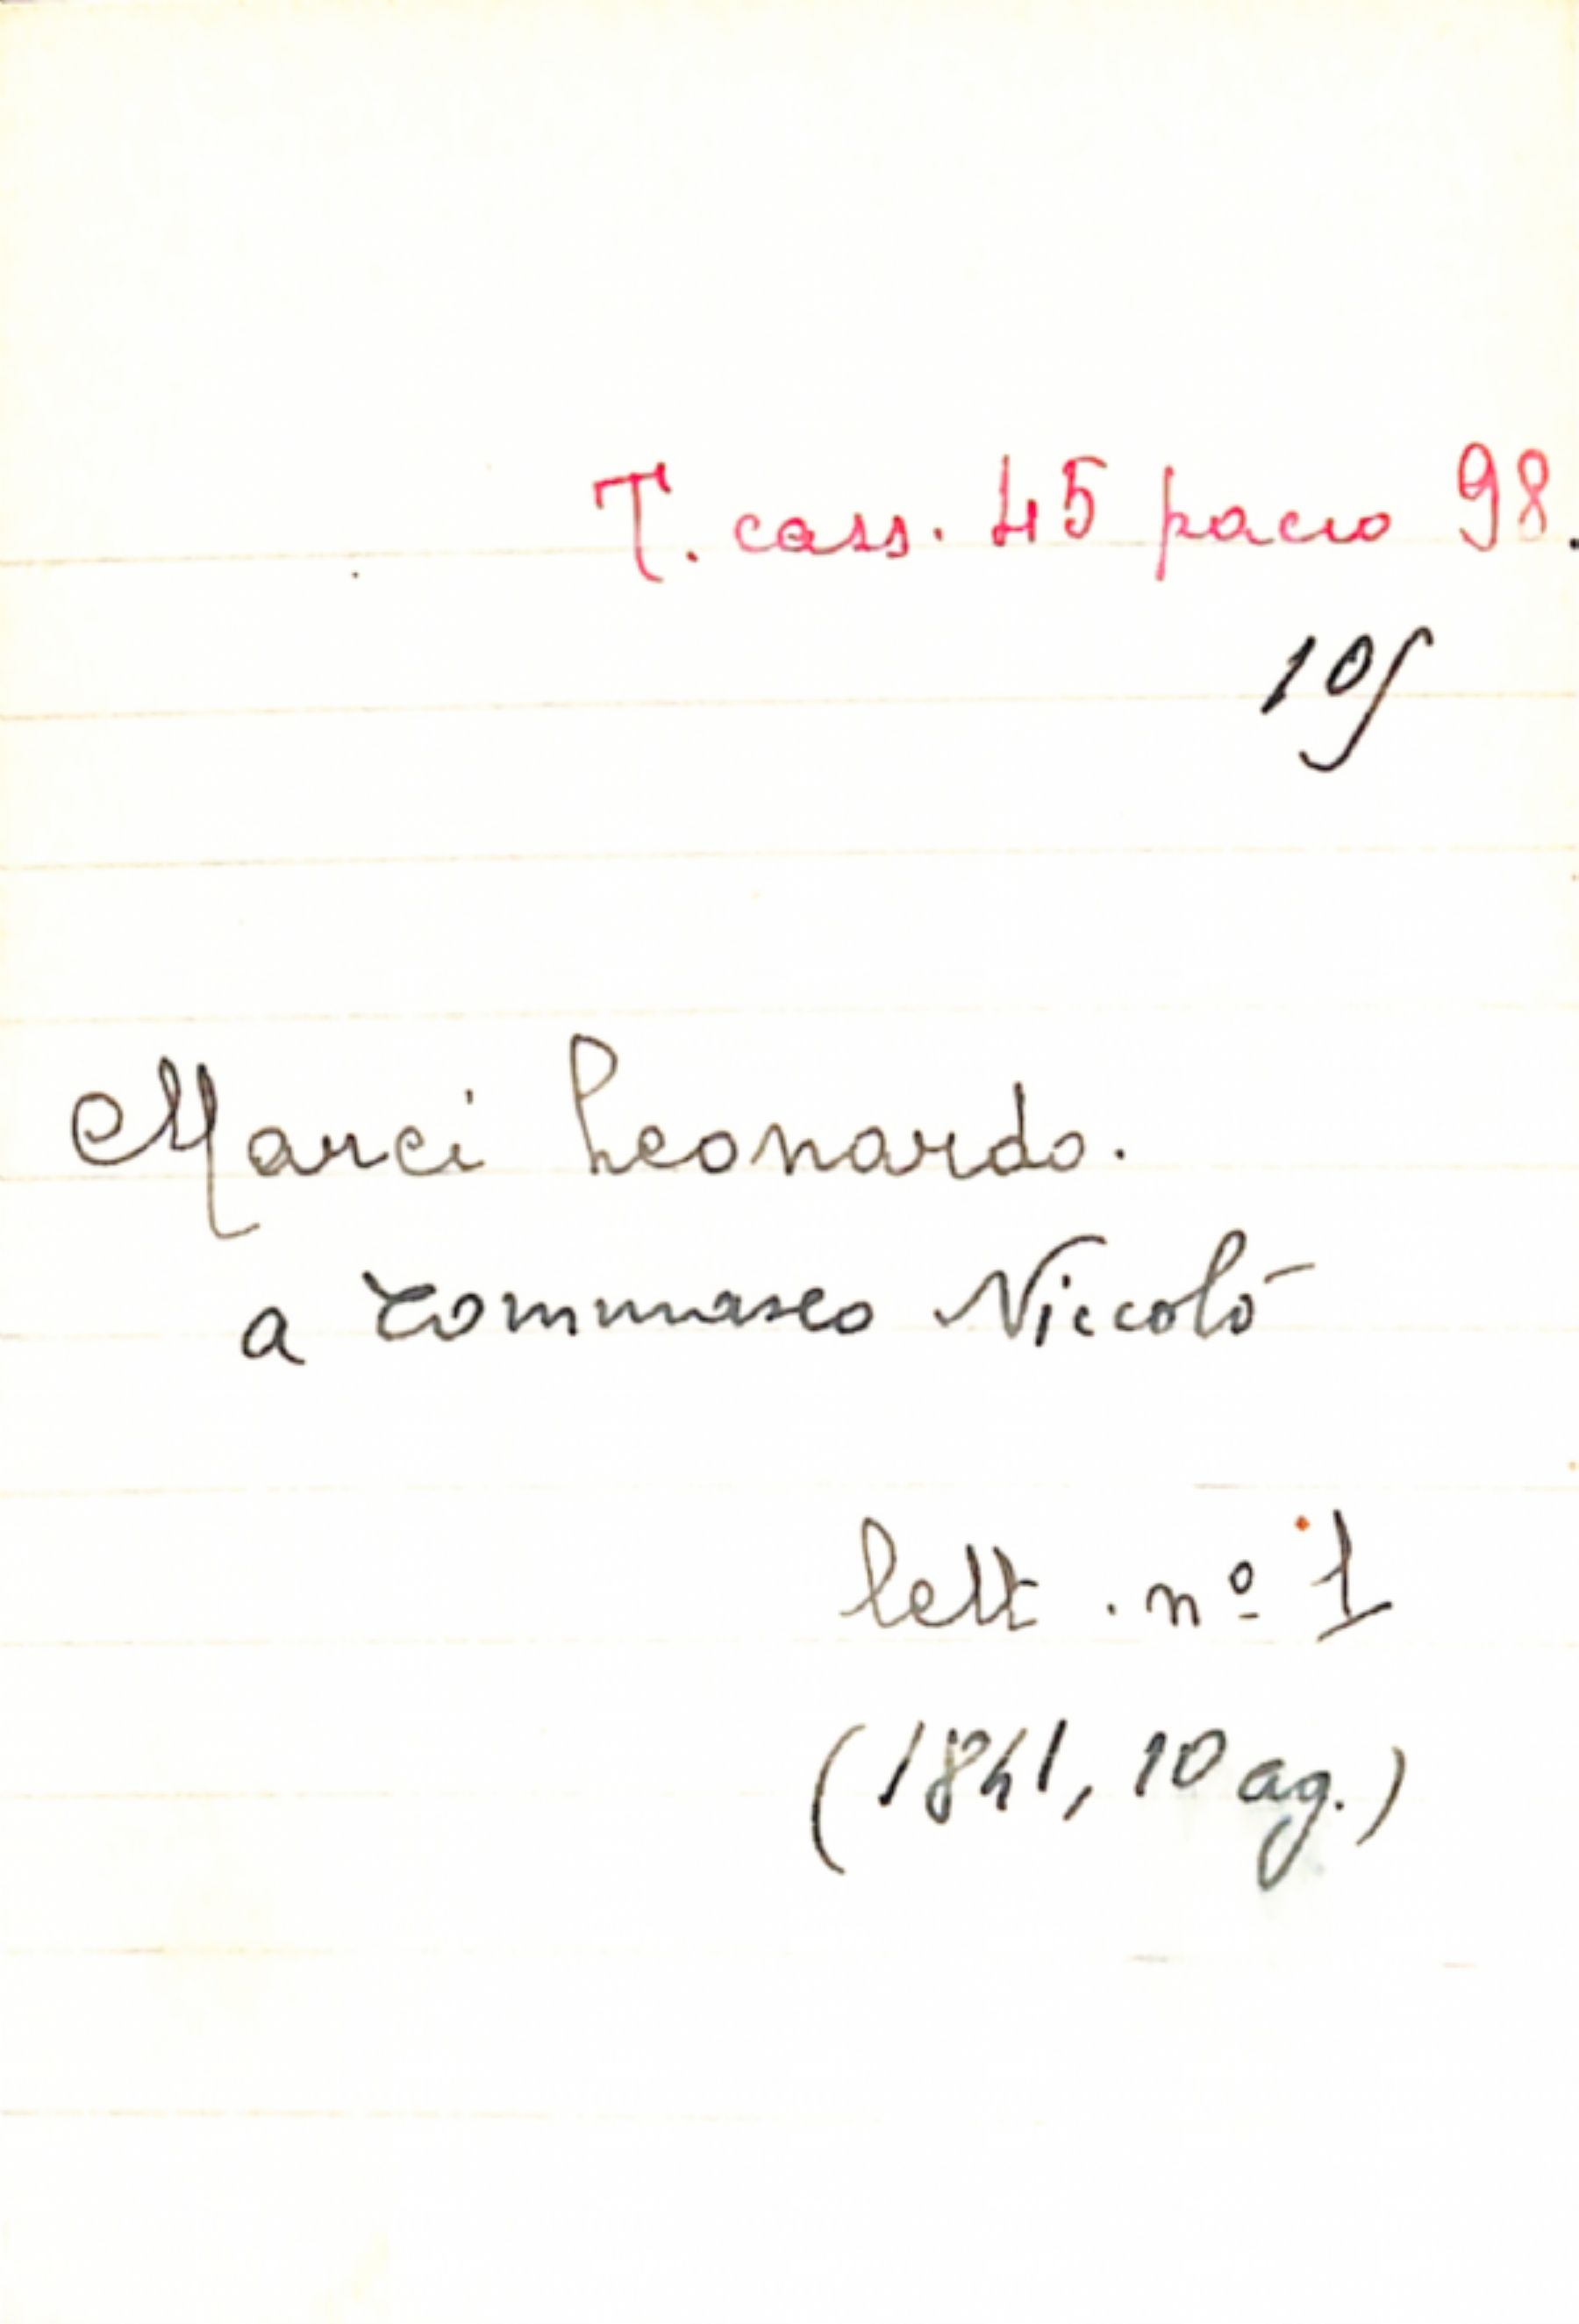 T. cass. 45 pacco 98.
105
Marci Leonardo.
a Tommaseo Niccolò
lett. nº 1
(1841, 10 ag.)